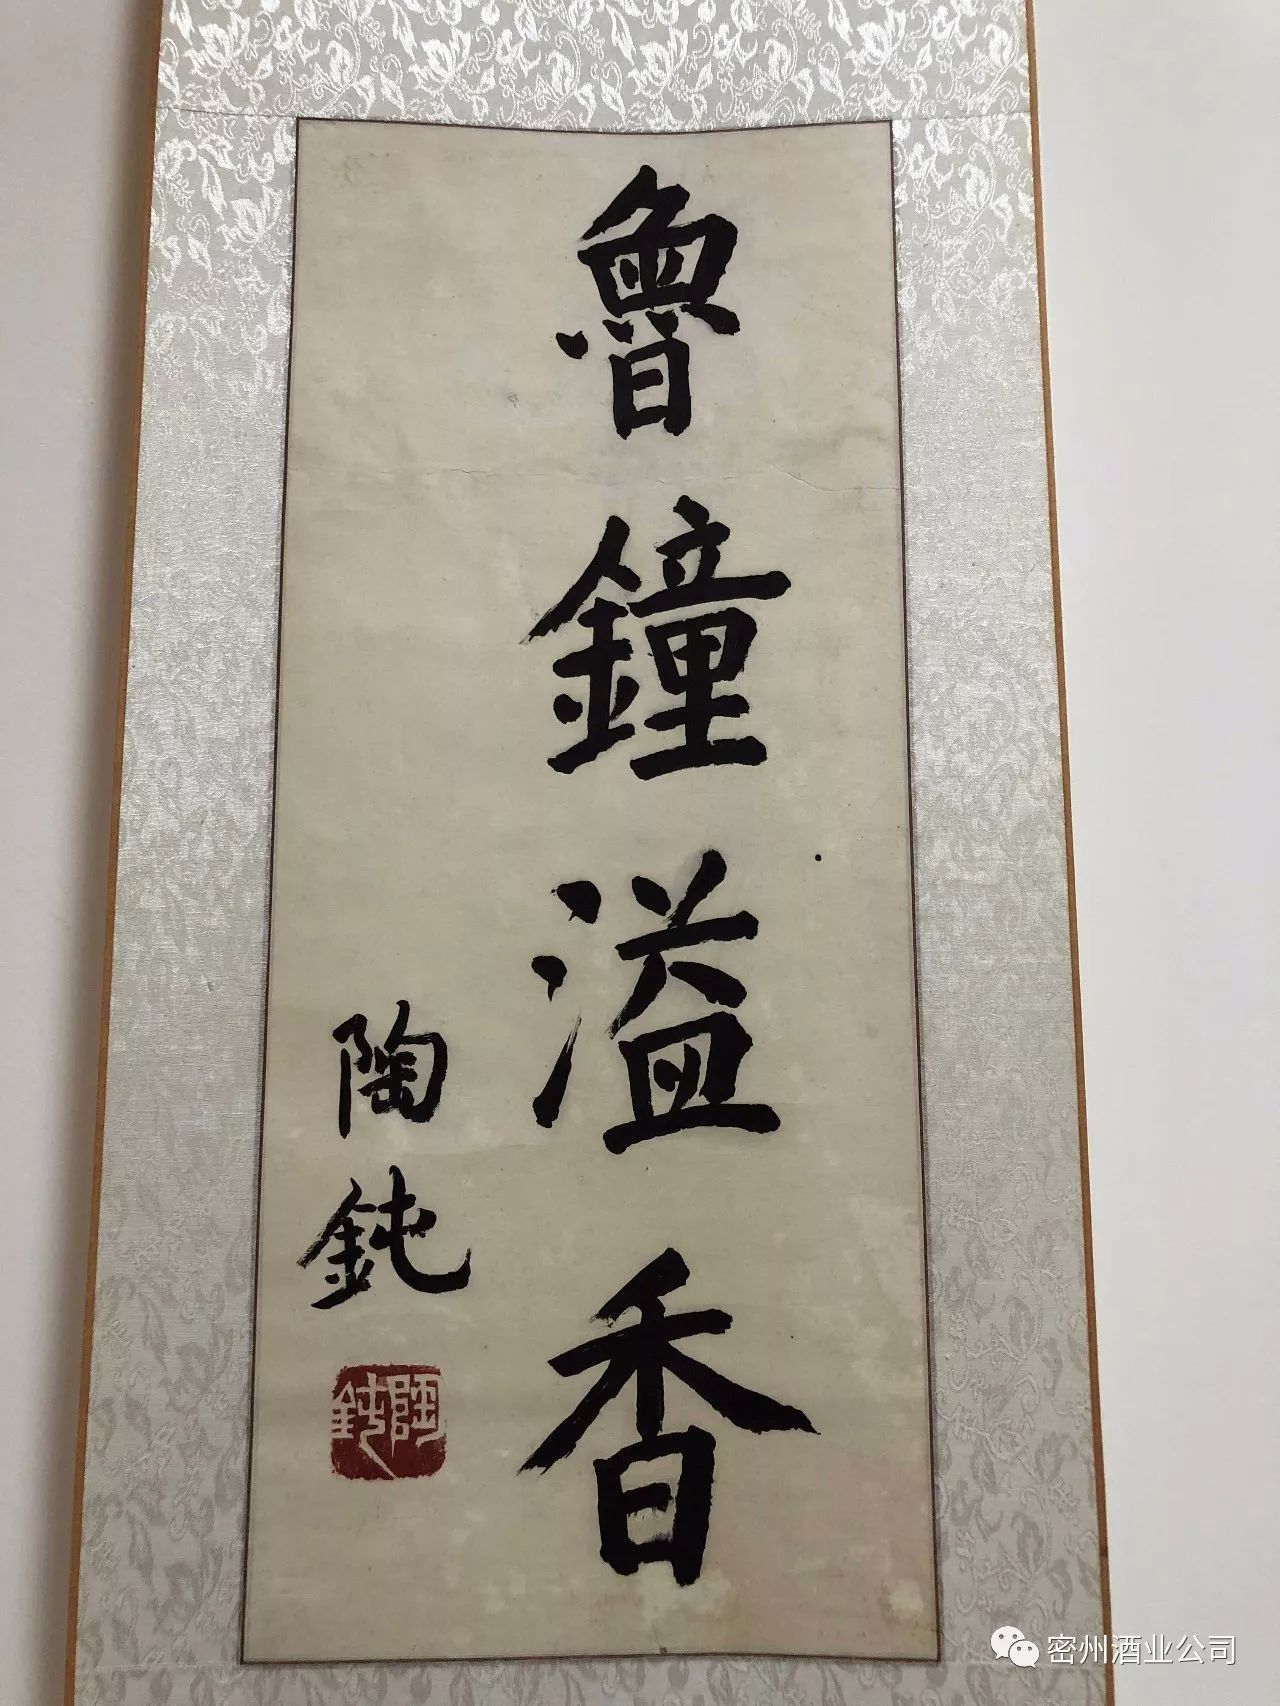 魯鐘溢香
陶鈍
陶鈍
密州酒业公司